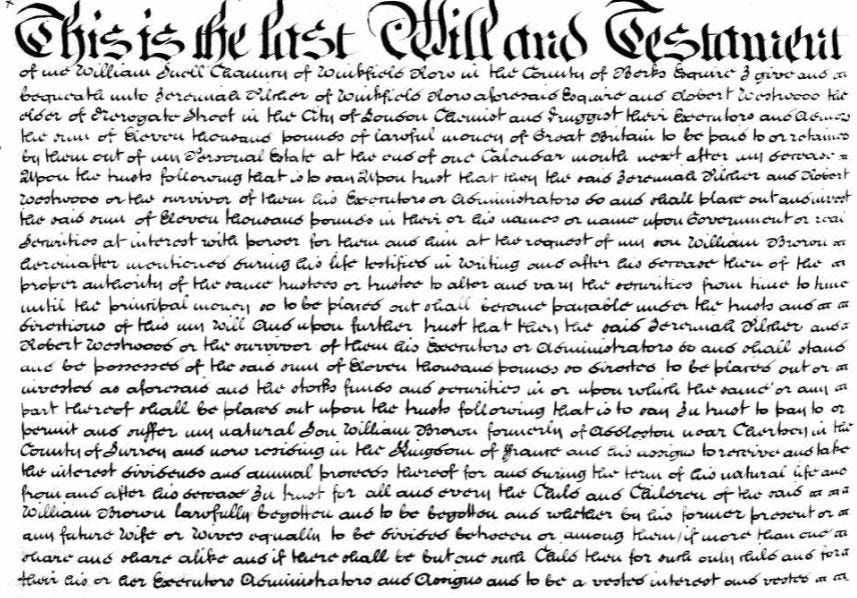 This is the last Will and Testament
of me William Snell Chauncy of Winkfield Row in the County of Berks Esquire I give and
bequeath unto Jeremiah Pilcher of Winkfield Row aforesaid Esquire and Robert Westwood the
elder of Newgate Street in the City of London Chemist and Druggist their Executors and Admors
the sum of Eleven thousand pounds of lawful money of Great Britain to be paid to or retained
by them out of my Personal Estate at the end of one Calendar month next after my decease
Upon the trusts following that is to say Upon trust that they the said Jeremiah Pilcher and Robert
Westwood or the survivor of them his Executors or Administrators do and shall place out and invest
the said sum of Eleven thousand pounds in their or his names or name upon Government or real
Securities at interest with power for them and him at the request of my son William Brown
hereinafter mentioned during his life testified in Writing and after his decease then of the
proper authority of the same trustees or trustee to alter and vary the securities from time to time
until the principal money so to be placed out shall become payable under the trusts and
directions of this my Will And upon further trust that they the said Jeremiah Pilcher and
Robert Westwood or the survivor of them his Executors or Administrators do and shall stand
and be possessed of the said sum of Eleven thousand pounds so directed to be placed out or
invested as aforesaid and the stocks funds and securities in or upon which the same or any
part thereof shall be placed out upon the trusts following that is to say In trust to pay to or
permit and suffer my natural Son William Brown formerly of Addleston near Chertsey in the
County of Surrey and now residing in the Kingdom of France and his assigns to receive and take
the interest dividends and annual proceeds thereof for and during the term of his natural life and
from and after his decease In trust for all and every the Child and Children of the said
William Brown lawfully begotten and to be begotten and whether by his former present or
any future Wife or Wives equally to be divided between or among them if more than one
share and share alike and if there shall be but one such Child then for such only child and for
their his or her Executors Administrators and Assigns and to be a vested interest and vested